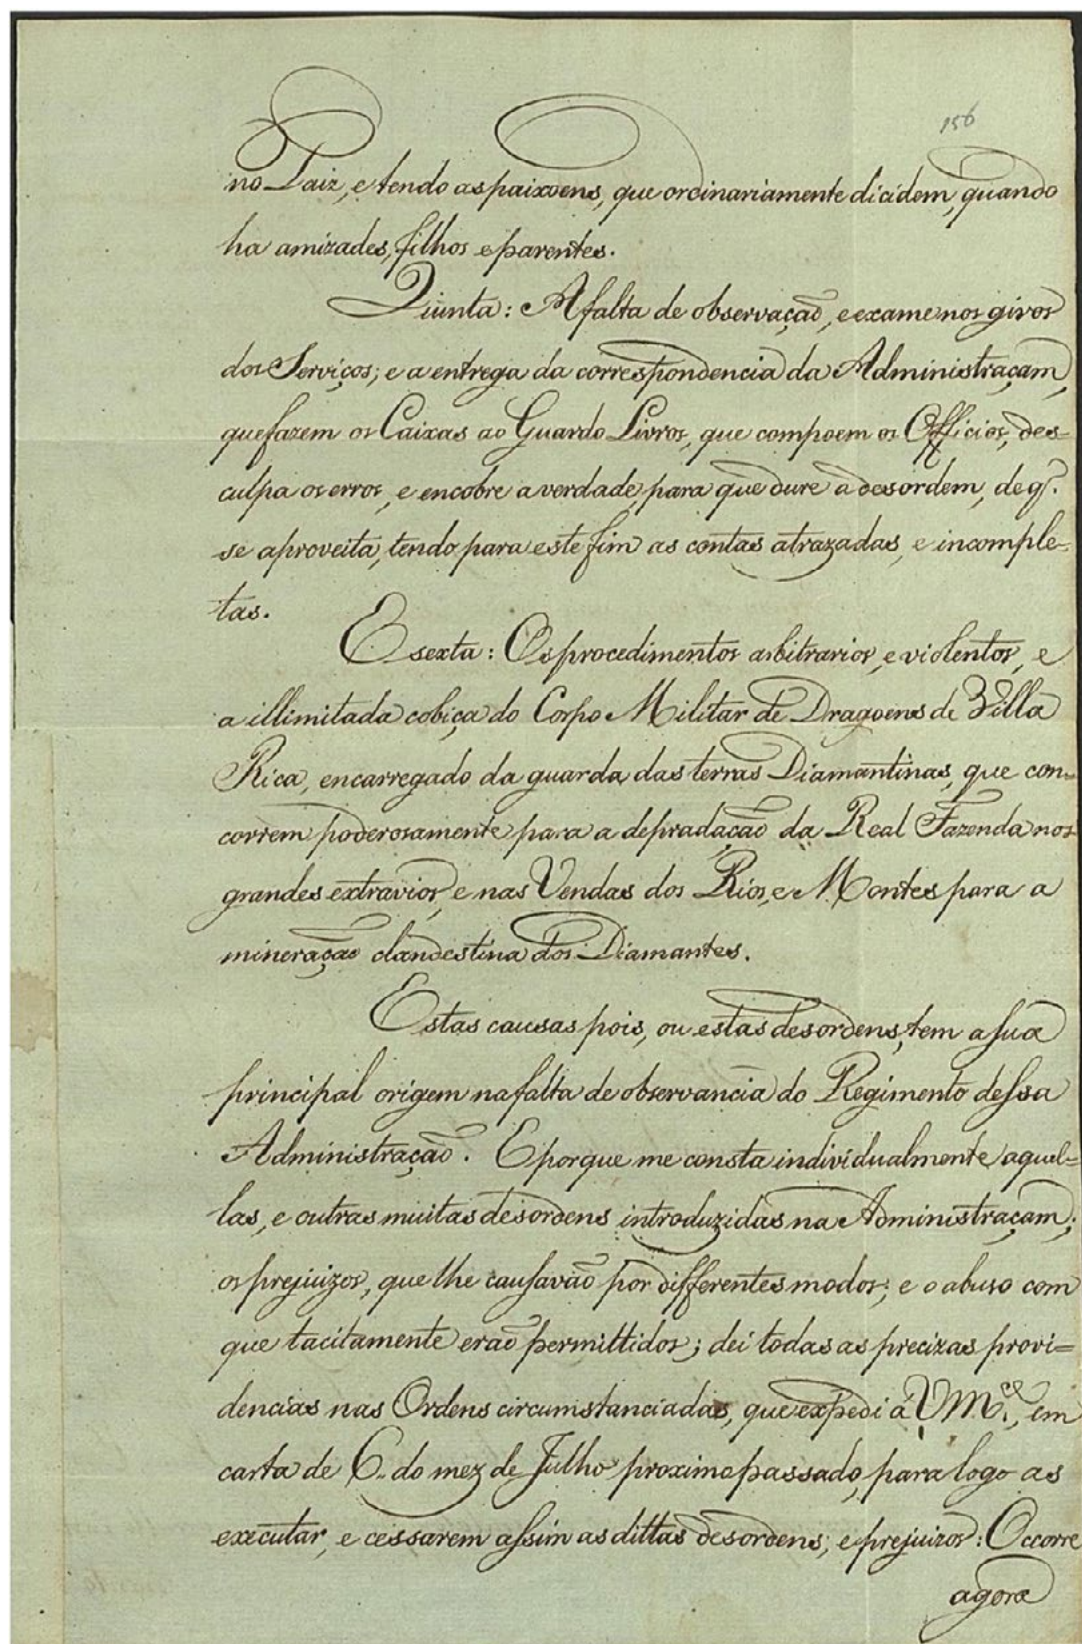 156
no Paiz, e tendo as paixoens, que ordinariamente dicidem, quando
ha amizades, filhos e parentes.
Quinta: A falta de observação, e exame nos giros
dos Serviços; e a entrega da correspondencia da Administraçam,
que fazem os Caixas ao Guarda Livros, que compoem os Officios, des=
culpa os erros, e encobre a verdade, para que dure a desordem, de q.
se aproveita, tendo para este fim as contas atrazadas, e incomple=
tas.
E sexta: Os procedimentos arbitrarios, e violentos, e
a illimitada cobiça do Corpo Militar de Dragoens de Villa
Rica, encarregado da guarda das terras Diamantinas, que con=
correm poderosamente para a depradacão da Real Fazenda nos
grandes extravios, e nas Vendas dos Rios, e Montes para a
mineração clandestina dos Diamantes.
Estas causas pois, ou estas desordens, tem a sua
principal origem na falta de observancia do Regimento dessa
Administração. E porque me consta individualmente aquel=
las, e outras muitas desordens introduzidas na Administraçam;
os prejuizos, que lhe causavão por differentes modos; e o abuso com
que tacitamente erão permittidos; dei todas as precizas provi=
dencias nas Ordens circumstanciadas, que expedi á VM.ce, em
carta de 6. do mez de Julho proximo passado, para logo as
executar, e cessarem assim as dittas desordens, e prejuizos: Occorre
agora